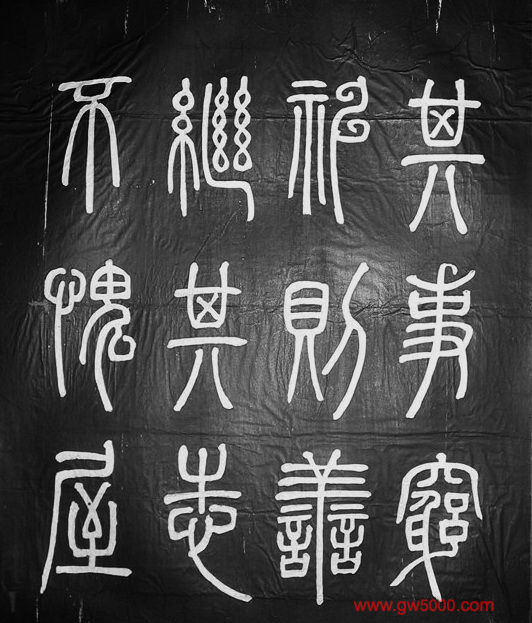 其事窮
神則善
繼其志
不愧屋
www.gw5000.com